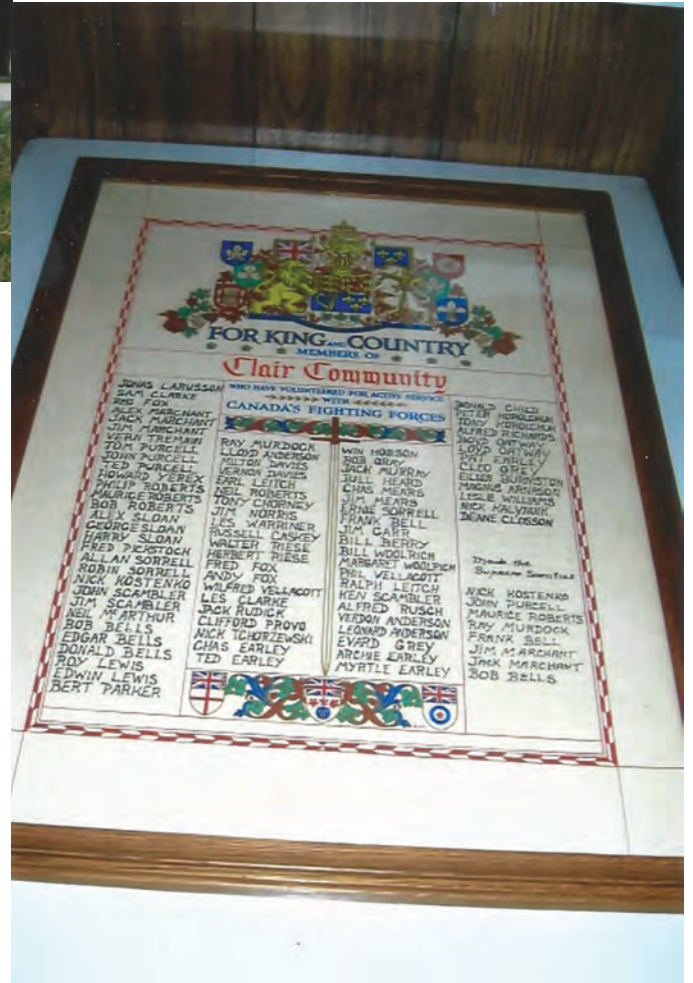 FOR KING AND COUNTRY
MEMBERS OF
Clair Community
WHO HAVE VOLUNTEERED FOR ACTIVE SERVICE
WITH
CANADA'S FIGHTING FORCES
JONAS LARUSSON
SAM CLARKE
FOX
ALEX MARCHANT
JACK MARCHANT
JIM MARCHANT
VERN TREMAIN
TOM PURCELL
JOHN PURCELL
TED PURCELL
HOWARD YEREX
PHILIP ROBERTS
MAURICE ROBERTS
BOB ROBERTS
ALEX SLOAN
GEORGE SLOAN
HARRY SLOAN
FRED PICKSTOCK
ALLAN SORRELL
ROBIN SORRELL
NICK KOSTENKO
JOHN SCAMBLER
JIM SCAMBLER
NEIL McARTHUR
BOB BELLS
EDGAR BELLS
DONALD BELLS
ROY LEWIS
EDWIN LEWIS
BERT PARKER
RAY MURDOCK
LLOYD ANDERSON
MILTON DAVIES
VERNON DAVIES
EARL LEITCH
NEIL ROBERTS
TONY CHORNEY
JIM NORRIS
LES WARRINER
RUSSELL CASKEY
WALTER RIESE
HERBERT RIESE
FRED FOX
ANDY FOX
WILFRED VELLACOTT
LES CLARKE
JACK RUDICK
CLIFFORD PROVO
NICK TCHORZEWSKI
CHAS EARLEY
TED EARLEY
WIN HOBSON
BOB GRAY
JACK MURRAY
BULL HEARD
CHAS MEARS
JIM MEARS
ERNIE SORRELL
FRANK BELL
JIM CARR
BILL BERRY
BILL WOOLRICH
MARGARET WOOLRICH
PHIL VELLACOTT
RALPH LEITCH
KEN SCAMBLER
ALFRED RUSCH
VERDON ANDERSON
LEONARD ANDERSON
EVARD GREY
ARCHIE EARLEY
MYRTLE EARLEY
DONALD CHILD
PETER KOROLCHUK
TONY KOROLCHUK
ALFRED RICHARDS
OATWAY
LOYD OATWAY
JIM EARLEY
CLEO GREY
EILEEN BURNSTON
MAGNUS ARNASON
LESLIE WILLIAMS
NICK KALYNIUK
DEANE CLOSSON
Made the
Supreme Sacrifice
NICK KOSTENKO
JOHN PURCELL
MAURICE ROBERTS
RAY MURDOCK
FRANK BELL
JIM MARCHANT
JACK MARCHANT
BOB BELLS